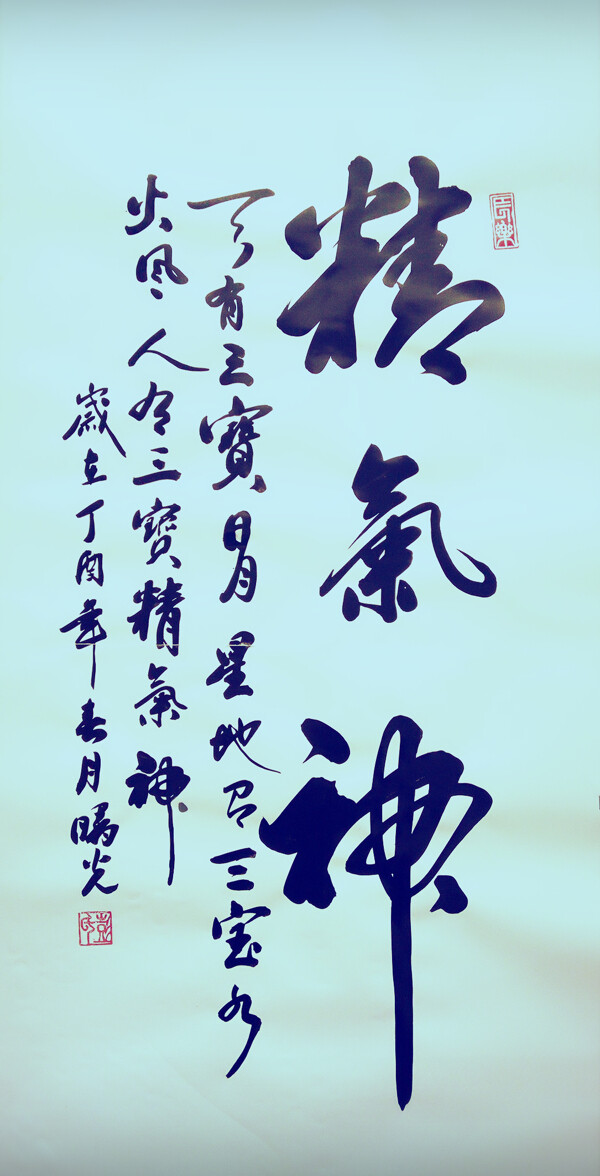 精氣神
天有三寶日月星地有三宝水
火風人有三寶精氣神
歲在丁酉年春月光